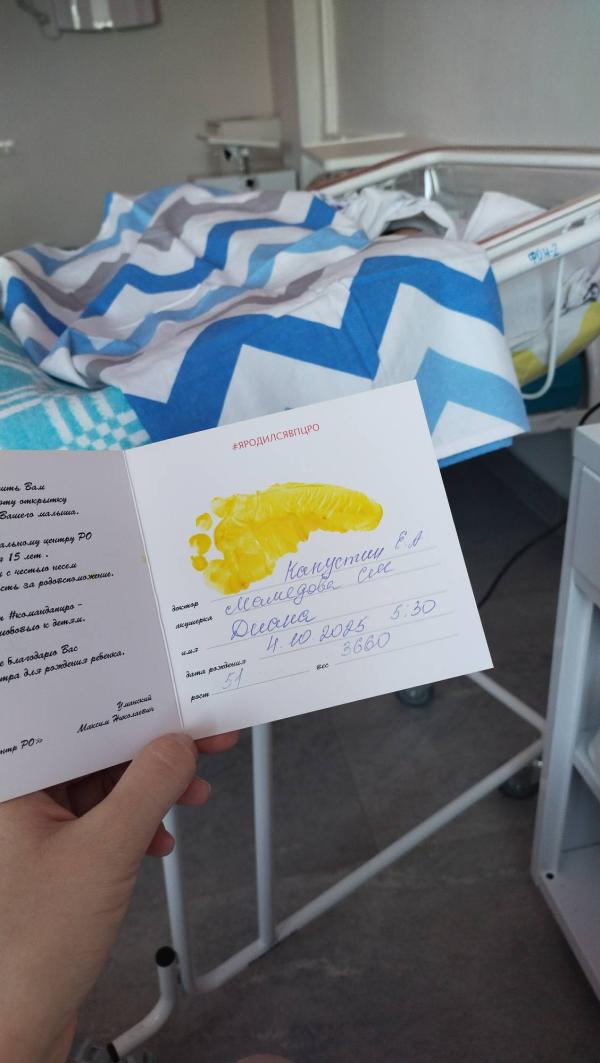 ить Вам
ту открытку
Вашего малыша.
альному центру РО
15 лет.
с честью несем
сть за родовспоможение.
#командапцро -
любовью к детям.
Благодарю Вас
тра для рождения ребенка.
Уманский
Максим Николаевич
ентр РО»
#ЯРОДИЛСЯВПЦРО
доктор Капустин Е.А
акушерка Мамедова
имя Диана
дата рождения 4.10.2025 5:30
рост 51 вес 3660
ФОН-2